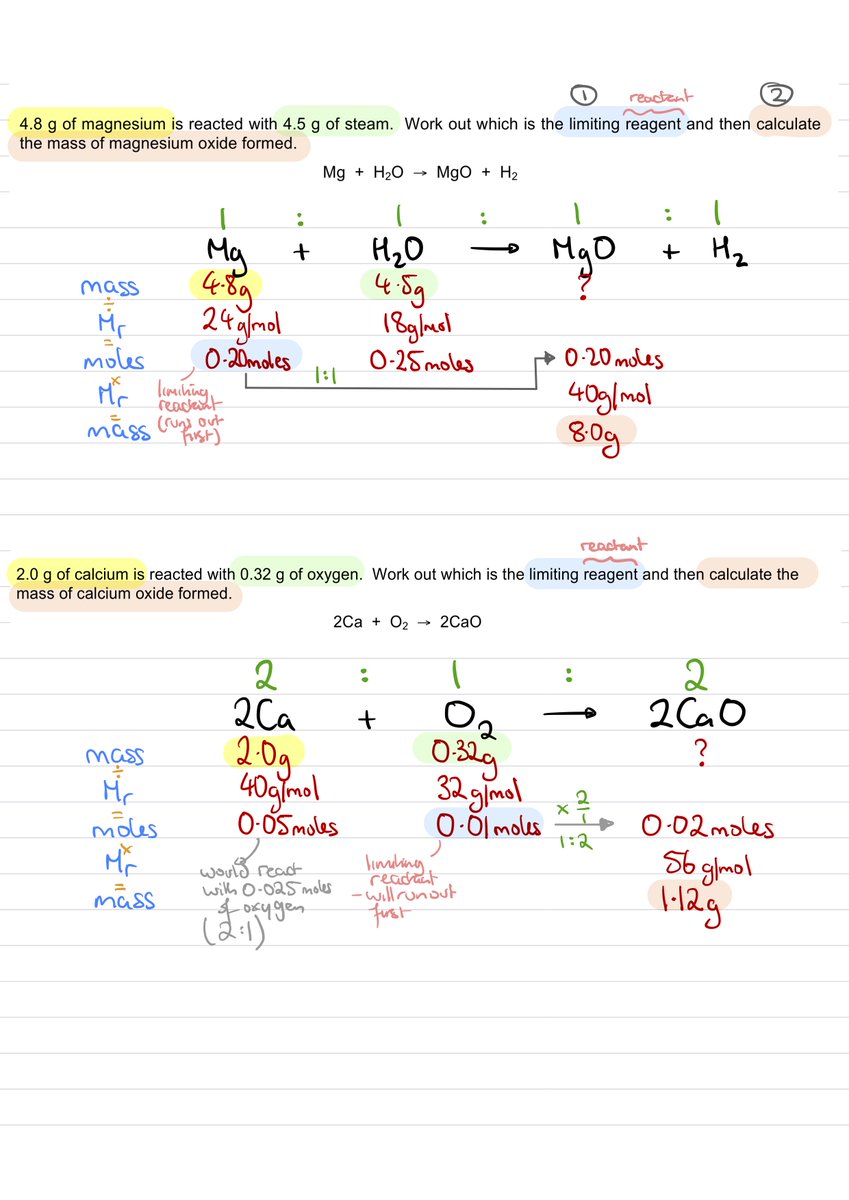 ① reactant ②
4.8 g of magnesium is reacted with 4.5 g of steam. Work out which is the limiting reagent and then calculate
the mass of magnesium oxide formed.
Mg + H₂O → MgO + H₂
1 : 1 : 1 : 1
Mg + H₂O → MgO + H₂
mass 4.8g 4.5g ?
÷
Mr 24g/mol 18g/mol
=
moles 0.20moles 0.25moles 0.20moles
×
1:1
Mr limiting 40g/mol
reactant
=
mass (runs out 8.0g
first)
reactant
2.0 g of calcium is reacted with 0.32 g of oxygen. Work out which is the limiting reagent and then calculate the
mass of calcium oxide formed.
2Ca + O₂ → 2CaO
2 : 1 : 2
2Ca + O₂ → 2CaO
mass 2.0g 0.32g ?
÷
Mr 40g/mol 32g/mol
=
moles 0.05moles 0.01moles × 2/1 0.02moles
1:2
×
Mr would react limiting 56g/mol
with 0.025moles reactant
=
mass of oxygen - will run out 1.12g
(2:1) first